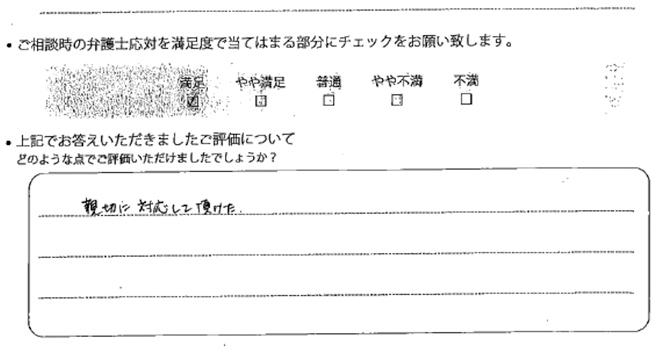 • ご相談時の弁護士応対を満足度で当てはまる部分にチェックをお願い致します。
満足 やや満足 普通 やや不満 不満
☑ ☐ ☐ ☐ ☐
• 上記でお答えいただきましたご評価について
どのような点でご評価いただけましたでしょうか？
親切に対応して頂けた.